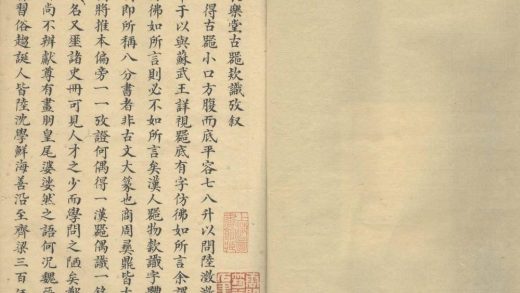 樂堂古器欵識攷叙
得古器小口方腹而底平容七八升以問陸澂
于以與蘇武王詳視器底有字仿佛如所言余謂
佛如所言則必不如所言矣漢人器物欵識字體
即所稱八分書者非古文大篆也商周彝鼎皆大
將推本偏旁一一攷證何偶得一漢器偶識一銘
名又垔諸史冊可見人才之少而學問之陋矣鄭
尚不辨獻尊有畫朙皇尾婆娑然之語何况魏晉
習俗趨誕人皆陸沈學鮮海善沿至齊梁三百